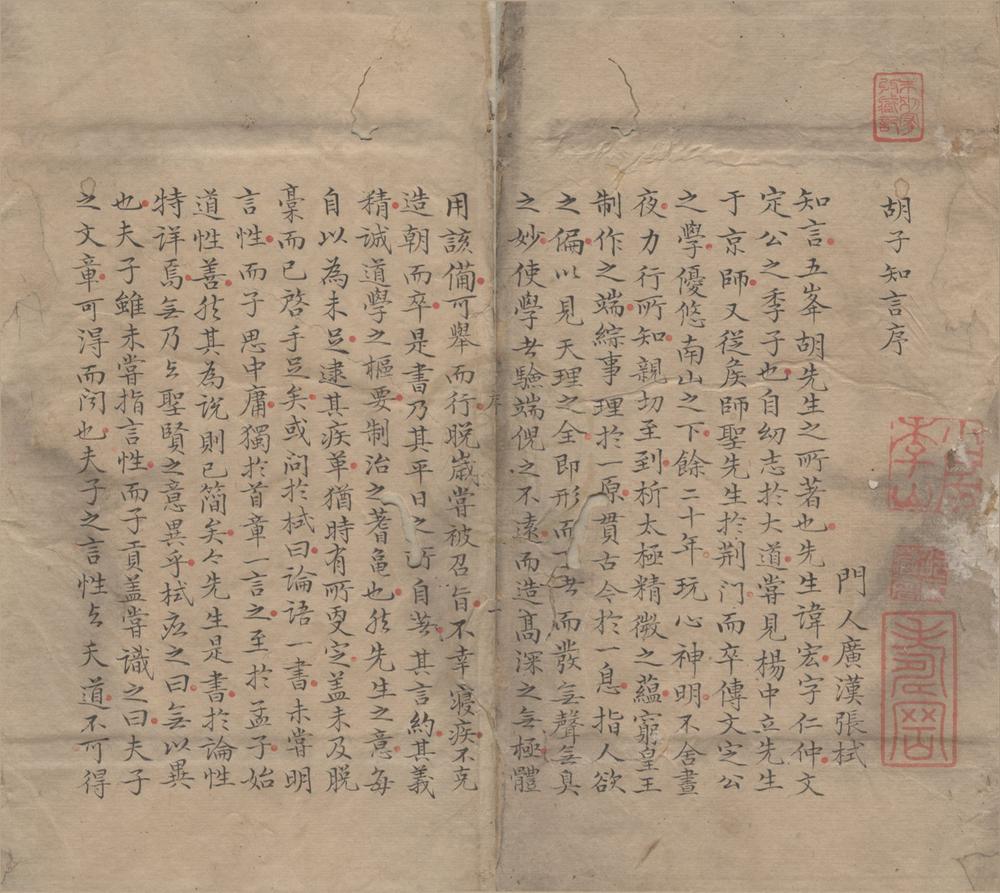 胡子知言序
門人廣漢張栻
知言五峯胡先生之所著也先生諱宏字仁仲文
定公之季子也自㓜志於大道嘗見楊中立先生
于京師又從矦師聖先生於荆门而卒傳文㝎公
之學優悠南山之下餘二十年玩心神明不舍晝
夜力行所知親切至到析太極精微之蘊窮皇王
制作之端綜事理於一原貫古今於一息指人欲
之偏以見天理之全即形而下者而發無聲無臭
之妙使學者驗端倪之不遠而造髙深之無極體
用該備可舉而行晚歲嘗被召旨不幸寢疾不克
造朝而卒是書乃其平日之所自著其言約其義
精誠道學之樞要制治之蓍龜也然先生之意每
自以為未足逮其疾革猶時有所更㝎盖未及脱
稾而已啓手足矣或问於栻曰論語一書未嘗明
言性而子思中庸獨於首章一言之至於孟子始
道性善然其為說則已簡矣今先生是書於論性
特详焉無乃与聖賢之意異乎栻应之曰無以異
也夫子雖未嘗指言性而子貢盖嘗識之曰夫子
之文章可得而闻也夫子之言性与天道不可得
序
一